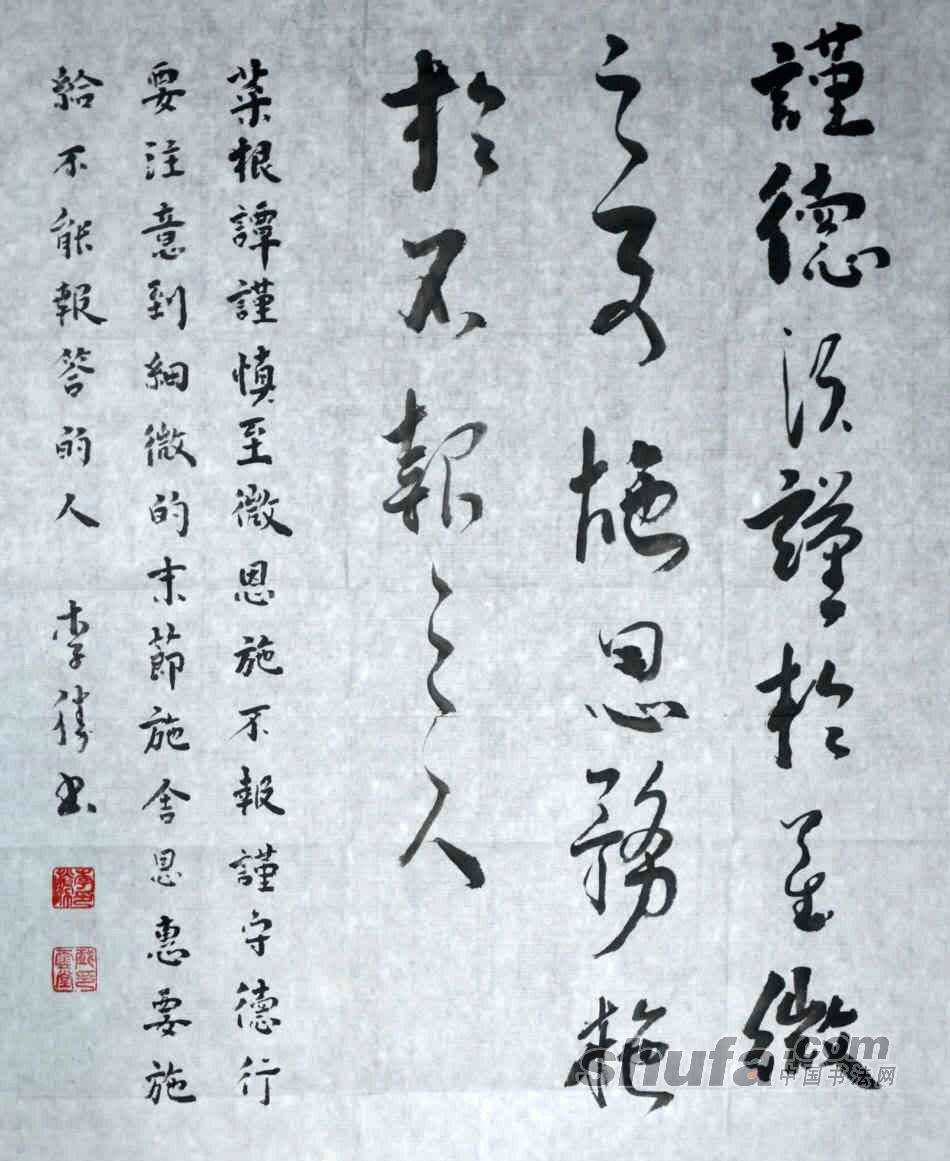 謹德須謹於至微
之事施恩務施
於不報之人
菜根譚謹慎至微恩施不報謹守德行
要注意到細微的末節施舍恩惠要施
給不能報答的人 李勝书
shufa.com
中国书法网